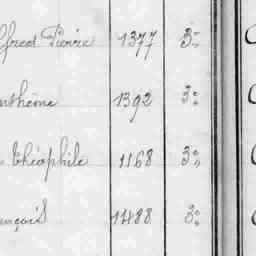 lfred Pierre 1377 3e
nthème 1392 3e
Théophile 1168 3e
ançois 1488 3e